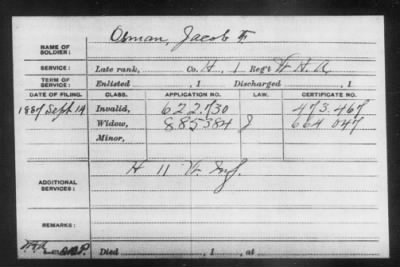 NAME OF SOLDIER: Osman, Jacob F
SERVICE: Late rank, Co. H, 1 Reg't W. H. A.
TERM OF SERVICE: Enlisted , 1 Discharged , 1
DATE OF FILING. CLASS. APPLICATION NO. LAW. CERTIFICATE NO.
1887 Sept 14 Invalid, 622.730 473.467
Widow, 885384 J 664 047
Minor,
ADDITIONAL SERVICES: H 11 Vt. Inf.
REMARKS:
Died , 1 , at